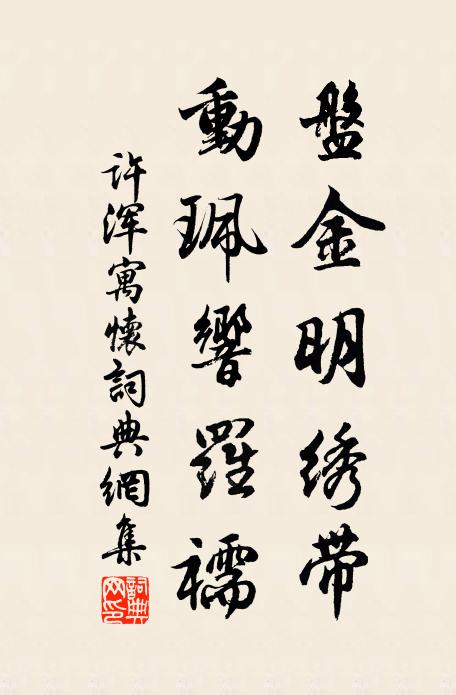 盤金明绣带
動珮響羅襦
许浑寓懷詞典網集
詞典網印